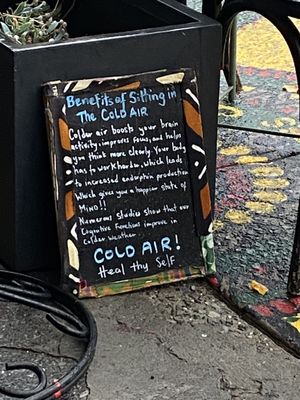 Benefits of Sitting in
The COLD AIR
Colder air boosts your brain
activity, improves focus, and helps
you think more clearly. Your body
has to work harder, which leads
to increased endorphin production
Which gives you a happier state of
MIND!!
Numerous studies show that our
Cognitive Functions improve in
Colder Weather
COLD AIR!
Heal thy Self